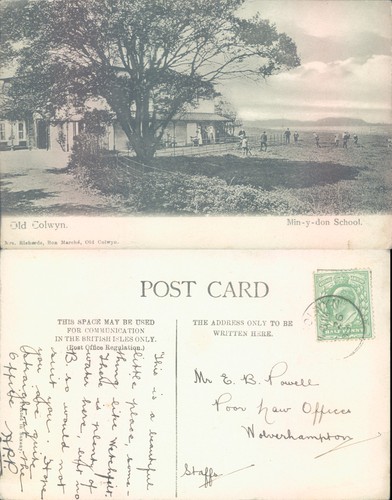 Old Colwyn.
Min-y-don School.
Mrs. Richards, Bon Marché, Old Colwyn.
POST CARD
THIS SPACE MAY BE USED
FOR COMMUNICATION
IN THE BRITISH ISLES ONLY.
(Post Office Regulation.)
THE ADDRESS ONLY TO BE
WRITTEN HERE.
This is a beautiful
little place, some-
thing like
There is plenty of
water here, but no
B. so would not
suit you. Hope
you are quite
Mr E. B. Powell
Poor Law Offices
Wolverhampton
Staffs
HALFPENNY